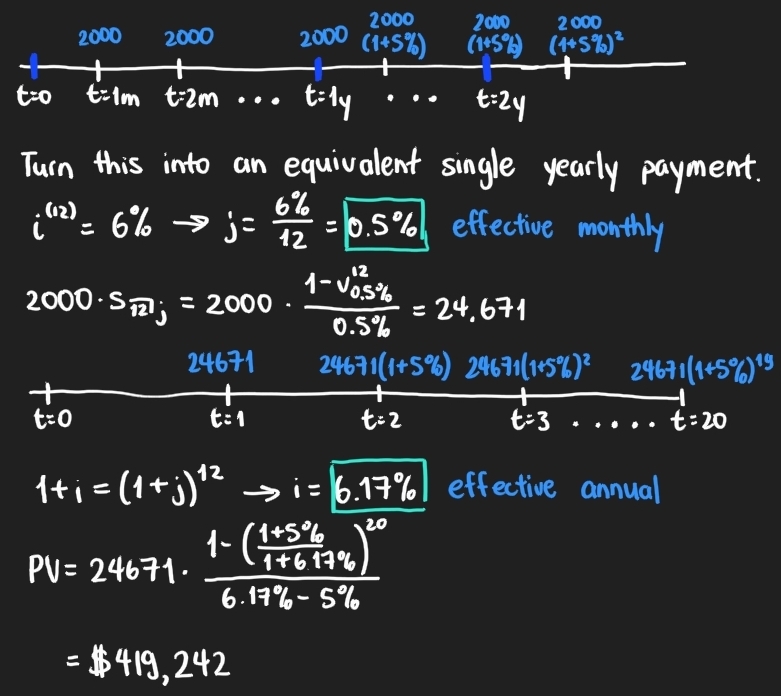 2000 2000 2000 2000 (1+5%) 2000 (1+5%) 2000 (1+5%)²
t=0 t=1m t=2m ... t=1y ... t=2y
Turn this into an equivalent single yearly payment.
i⁽¹²⁾ = 6% → j = 6%/12 = 0.5% effective monthly
2000 · S_12⌉j = 2000 · (1-v¹²_0.5%)/0.5% = 24,671
24671 24671(1+5%) 24671(1+5%)² 24671(1+5%)¹⁹
t=0 t=1 t=2 t=3 ..... t=20
1+i = (1+j)¹² → i = 6.17% effective annual
PV = 24671 · (1-((1+5%)/(1+6.17%))²⁰)/(6.17%-5%)
= $419,242